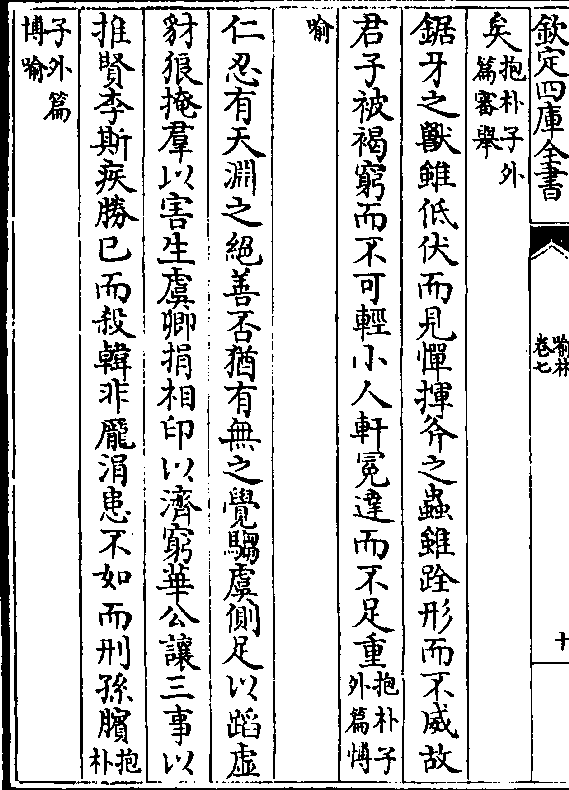 欽定四庫全書
喻林
卷七
十
矣抱朴子外
篇審舉
鋸牙之獸雖低伏而見憚揮斧之蟲雖跧形而不威故
君子被褐窮而不可輕小人軒冕達而不足重抱朴子
外篇博
喻
仁忍有天淵之絕善否猶有無之覺騶虞側足以蹈虛
豺狼掩羣以害生虞卿捐相印以濟窮華公讓三事以
推賢李斯疾勝已而殺韓非龐涓患不如而刑孫臏抱
朴
子外篇
博喻